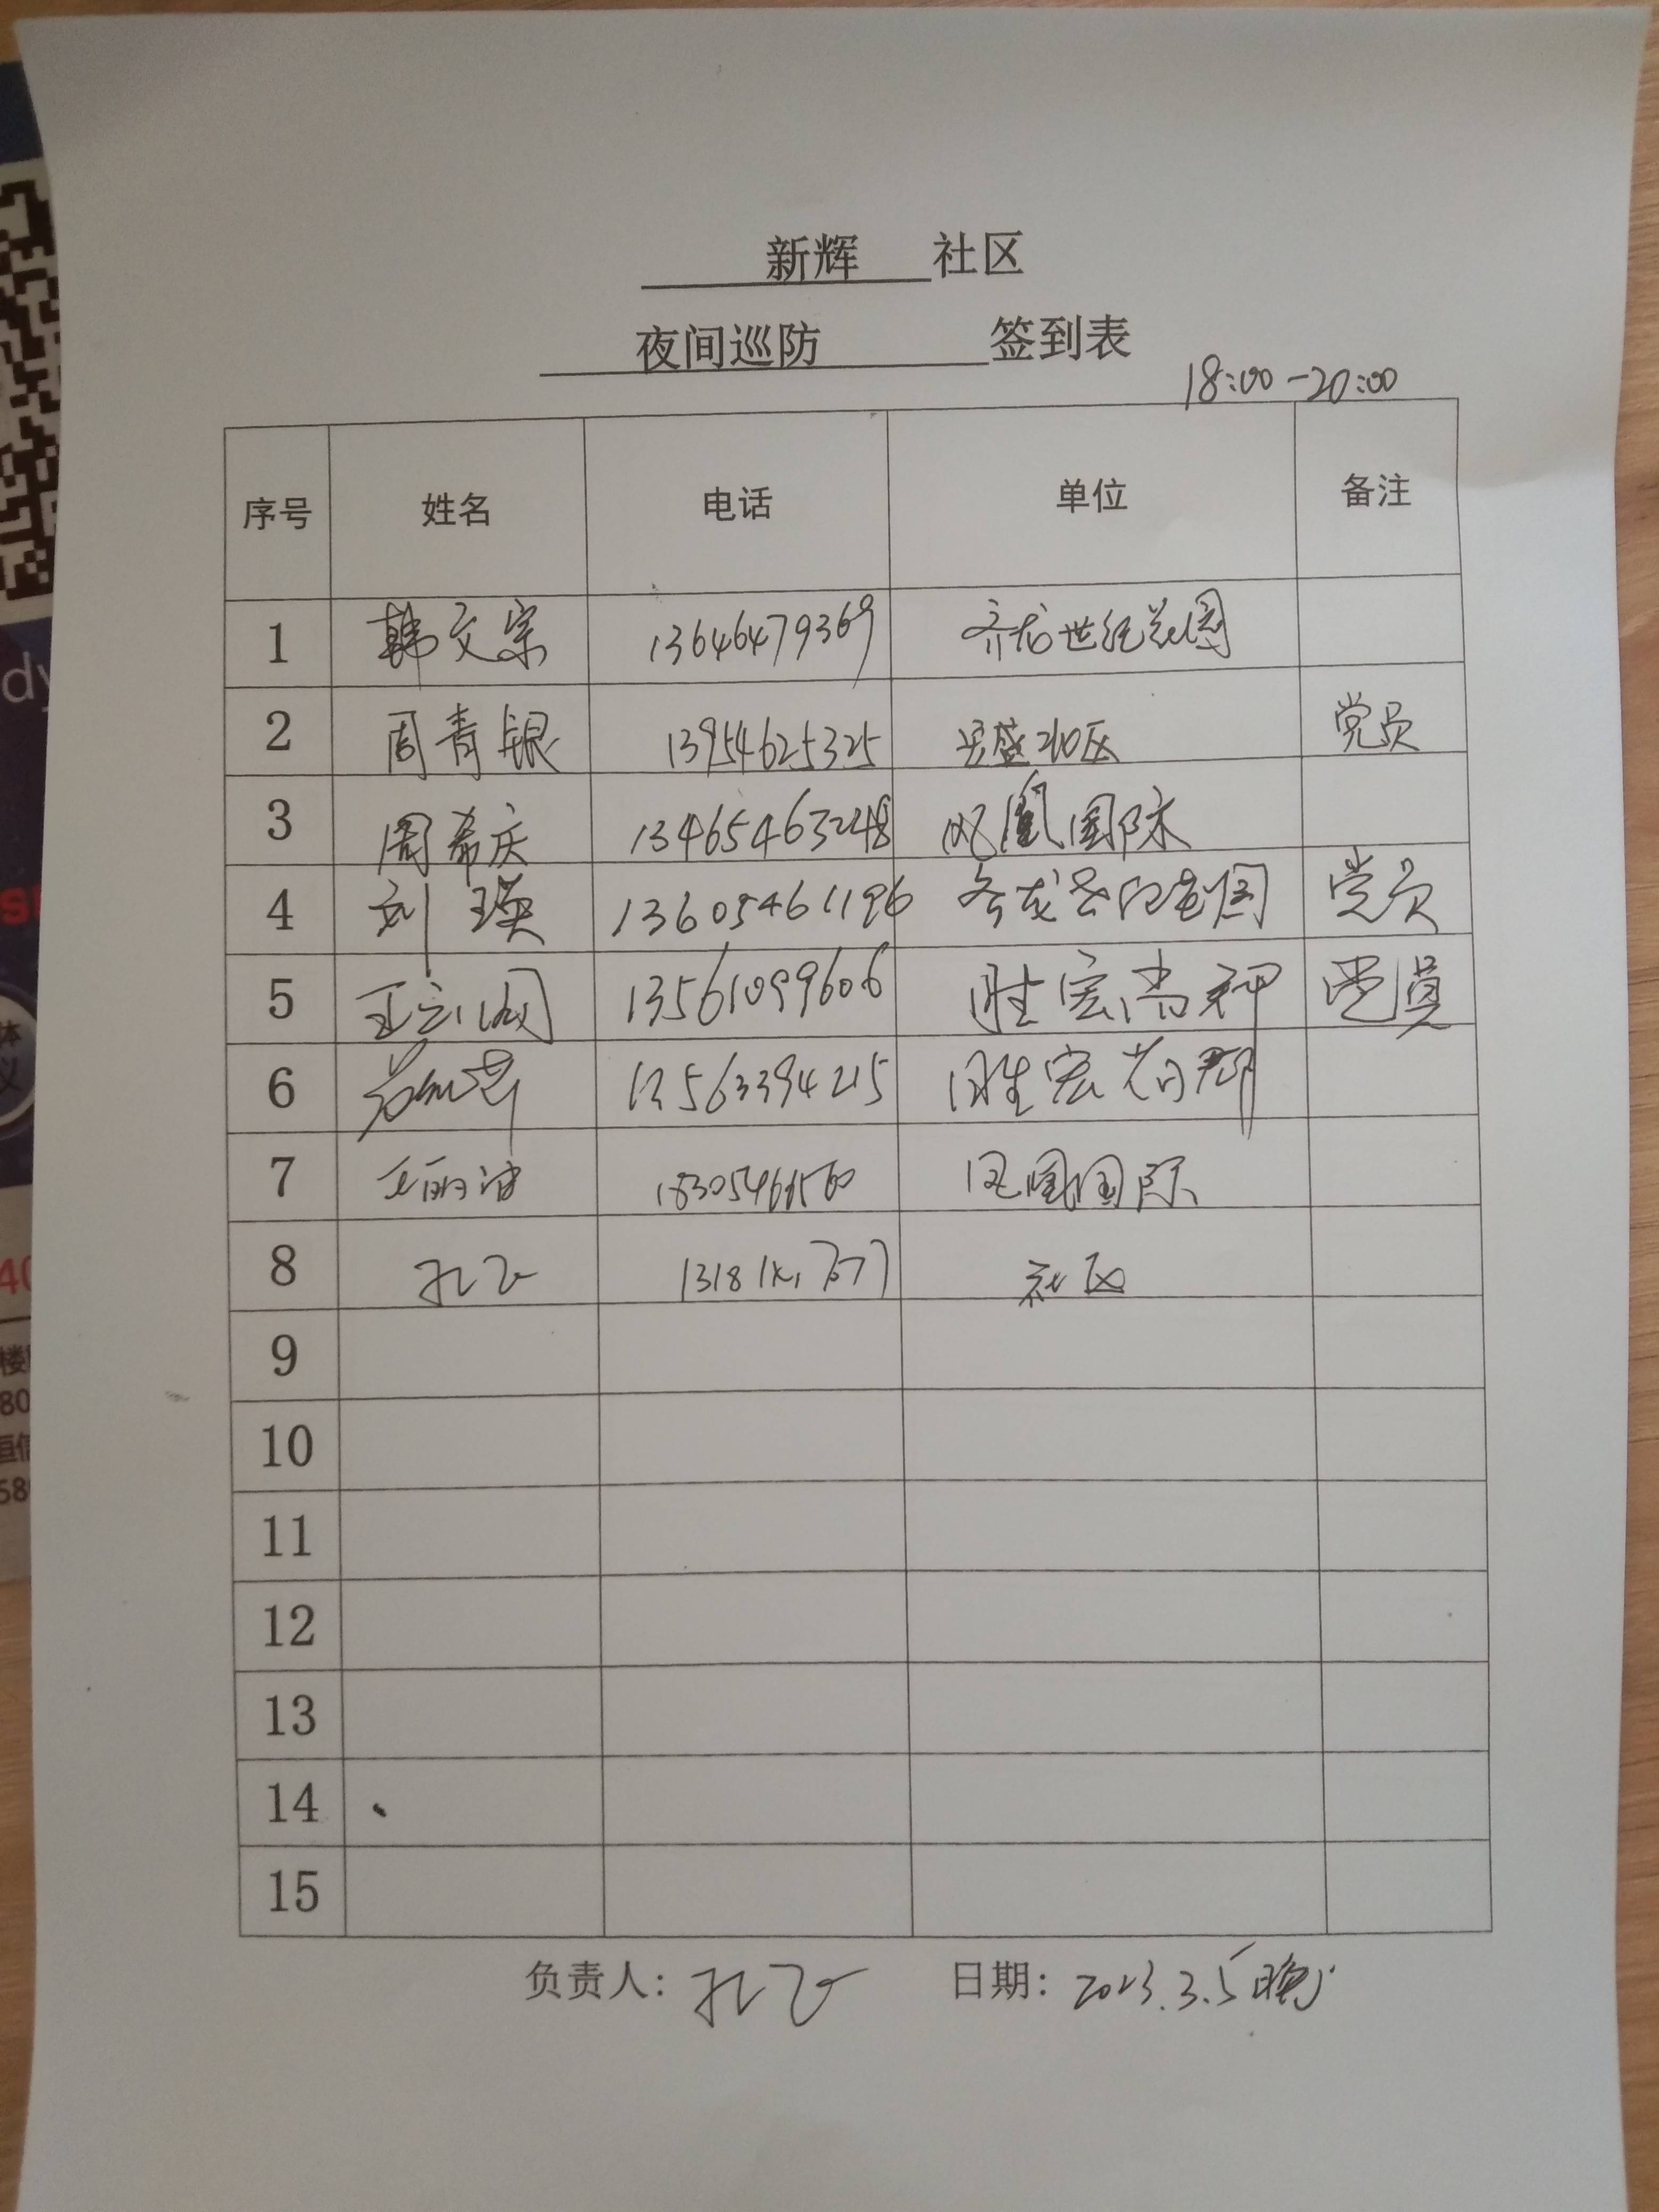 新辉 社区
夜间巡防 签到表
18:00-20:00
序号 姓名 电话 单位 备注
1 韩文宗 13646479369 齐龙世纪花园
2 周青银 13954625325 北区 党员
3 周希庆 13465463248 凤凰国际
4 刘瑛 13605461196 党员
5 王 13561099606 胜宏尚郡 党员
6 13563394215 胜宏尚郡
7 王丽 凤凰国际
8 孔飞 社区
9
10
11
12
13
14
15
负责人: 孔飞 日期: 2023.3.5晚
dy
体
义
40
楼
80
恒信
58